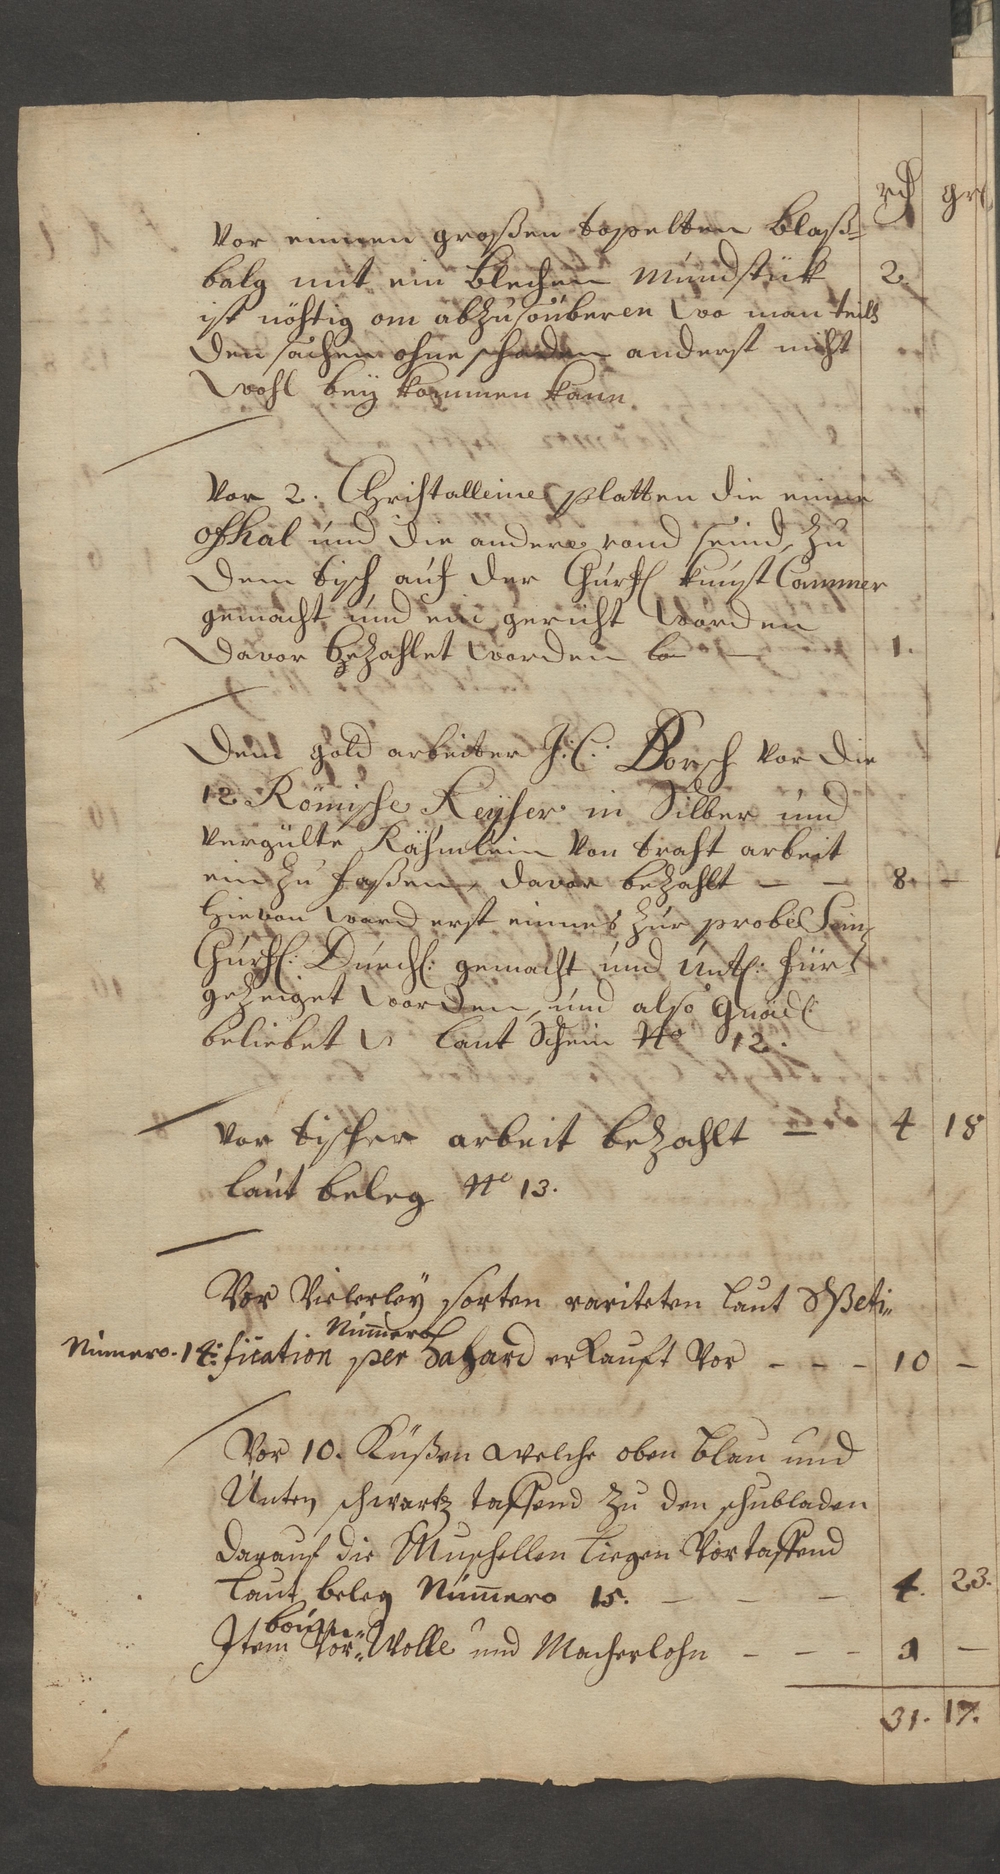 rth gr
Vor einnen großen topelten Blaß-
balg mit ein blechen Mundstück 2.
ist nöhtig om abzusäuberen wo man teils
den sachen ohne schaden anderst nicht
wohl beÿ kommen kann
Vor 2. Christalleine platten die einne
offhal und die andere rond seind, zu
dem tisch auf der Churfl kunst Cammer
gemacht und ein gericht worden
davor bezahlet worden — 1.
Dem gold arbeitter J: C: Dorsch vor die
12 Römische Keÿser in Silber und
vergülte Rähmlein von traht arbeit
ein zu faßen, davor bezahlt — — 8. —
hievon ward erst einnes zur probe Ein
Churfl: Durchl: gemacht und Untl: für
gezeiget worden, und also gnäd:
beliebet laut Schein No 12.
Vor tischer arbeit bezahlt — 4 18
laut beleg No 13.
Vor Vielerleÿ sorten rariteten laut Speti-
Numero
Numero. 14: fication per Hazard erkauft vor - - - 10 —
Vor 10. Küßen welche oben blau und
Unten schwartz taffend zu den schubladen
darauf die Muschellen liegen Vor taffend
laut beleg Numero 15. — — — 4. 23.
Item Vor Wolle und Macherlohn - - - 1 —
31. 17.